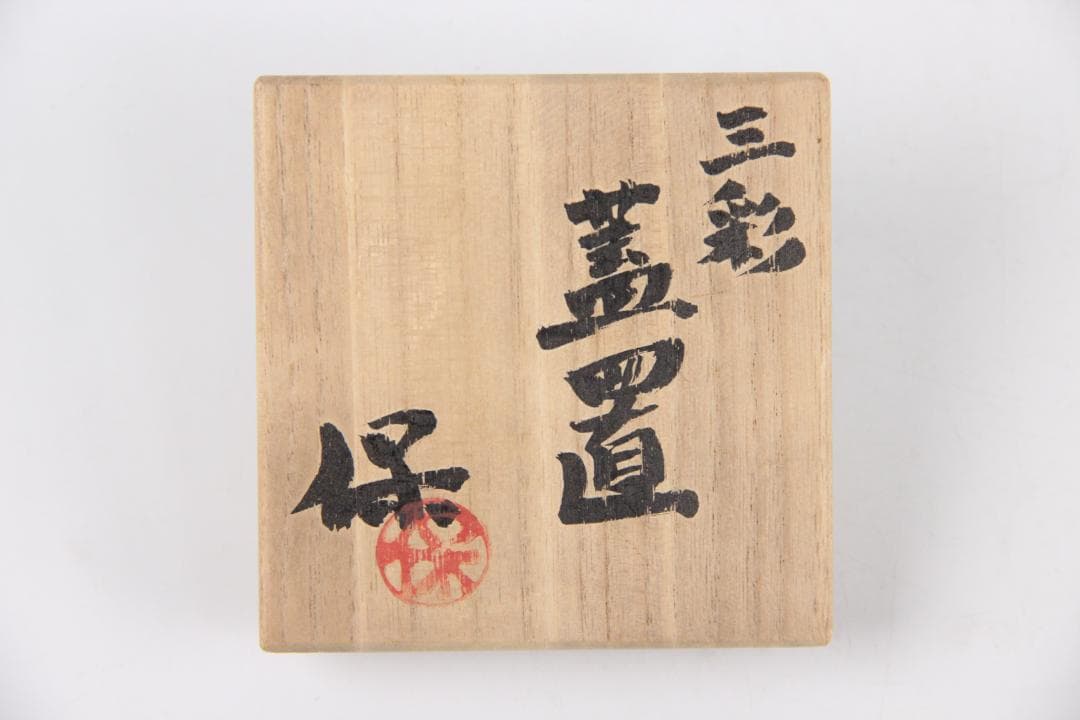 三彩
蓋置
保